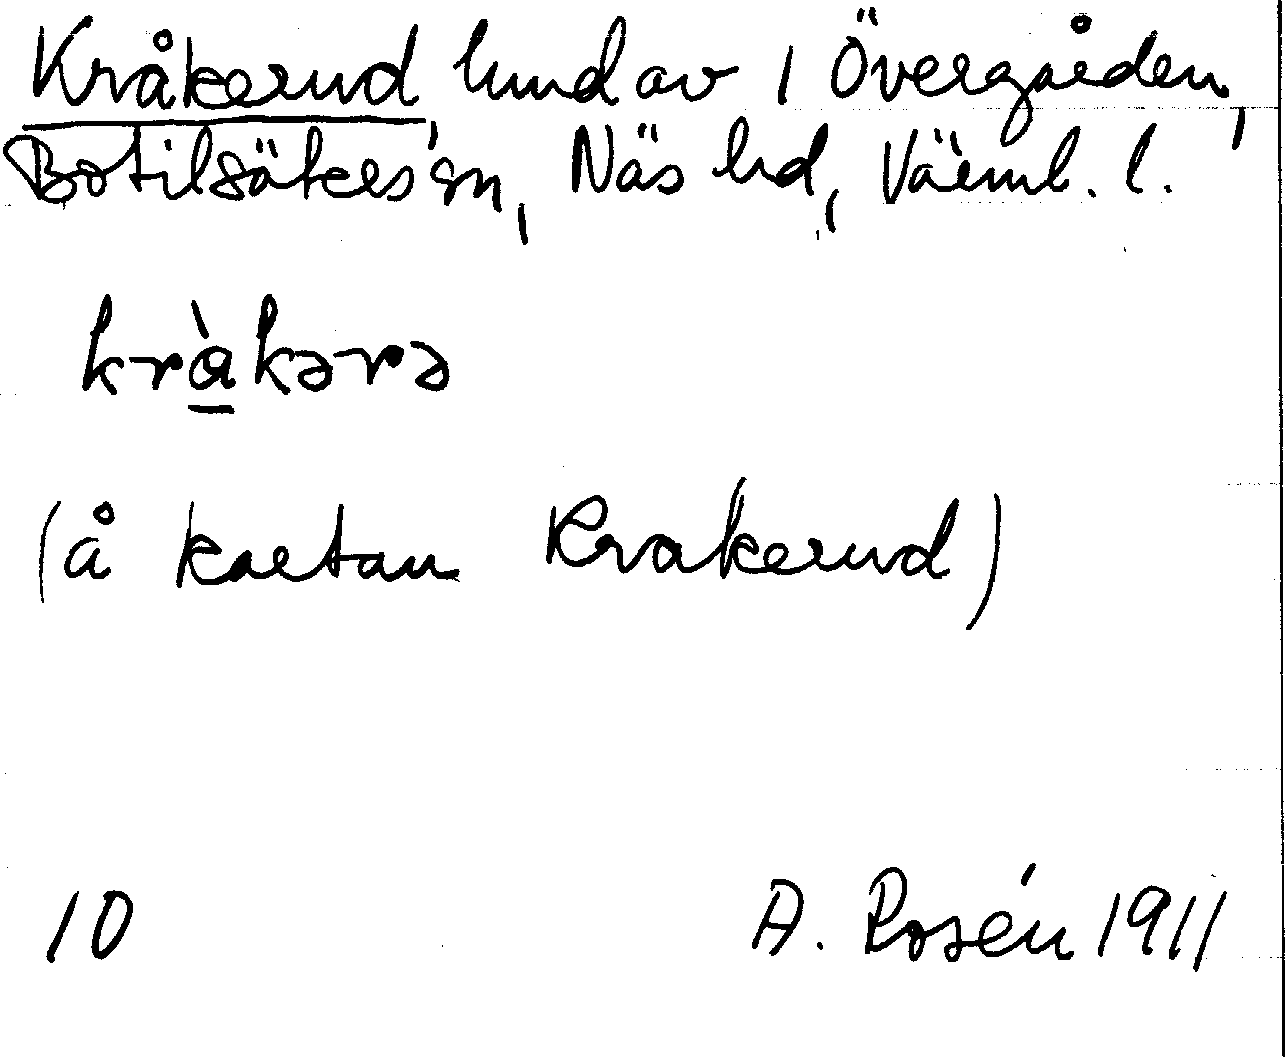 Kråkerud, hmd av 1 Övergården,
Botilsäters sn, Näs hd, Värml. l.
kràkərə
(å kartan Krakerud)
10
A. Rosén 1911